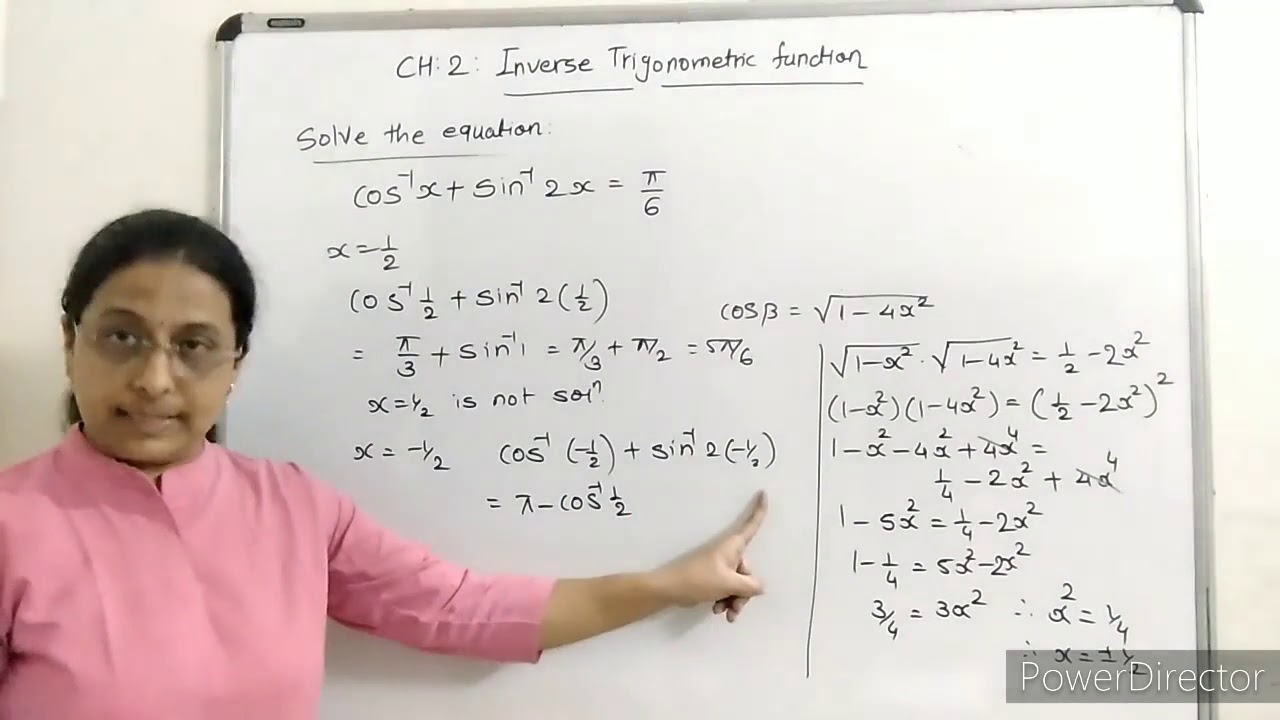 CH: 2: Inverse Trigonometric function
Solve the equation:
cos⁻¹x + sin⁻¹ 2x = π/6
x = 1/2
cos⁻¹ 1/2 + sin⁻¹ 2(1/2)
= π/3 + sin⁻¹ 1 = π/3 + π/2 = 5π/6
x = 1/2 is not solⁿ.
x = -1/2 cos⁻¹(-1/2) + sin⁻¹ 2(-1/2)
= π - cos⁻¹ 1/2
cosβ = √(1 - 4x²)
√(1-x²) · √(1-4x²) = 1/2 - 2x²
(1-x²)(1-4x²) = (1/2 - 2x²)²
1 - x² - 4x² + 4x⁴ =
1/4 - 2x² + 4x⁴
1 - 5x² = 1/4 - 2x²
1 - 1/4 = 5x² - 2x²
3/4 = 3x² ∴ x² = 1/4
∴ x = ±1/2
PowerDirector